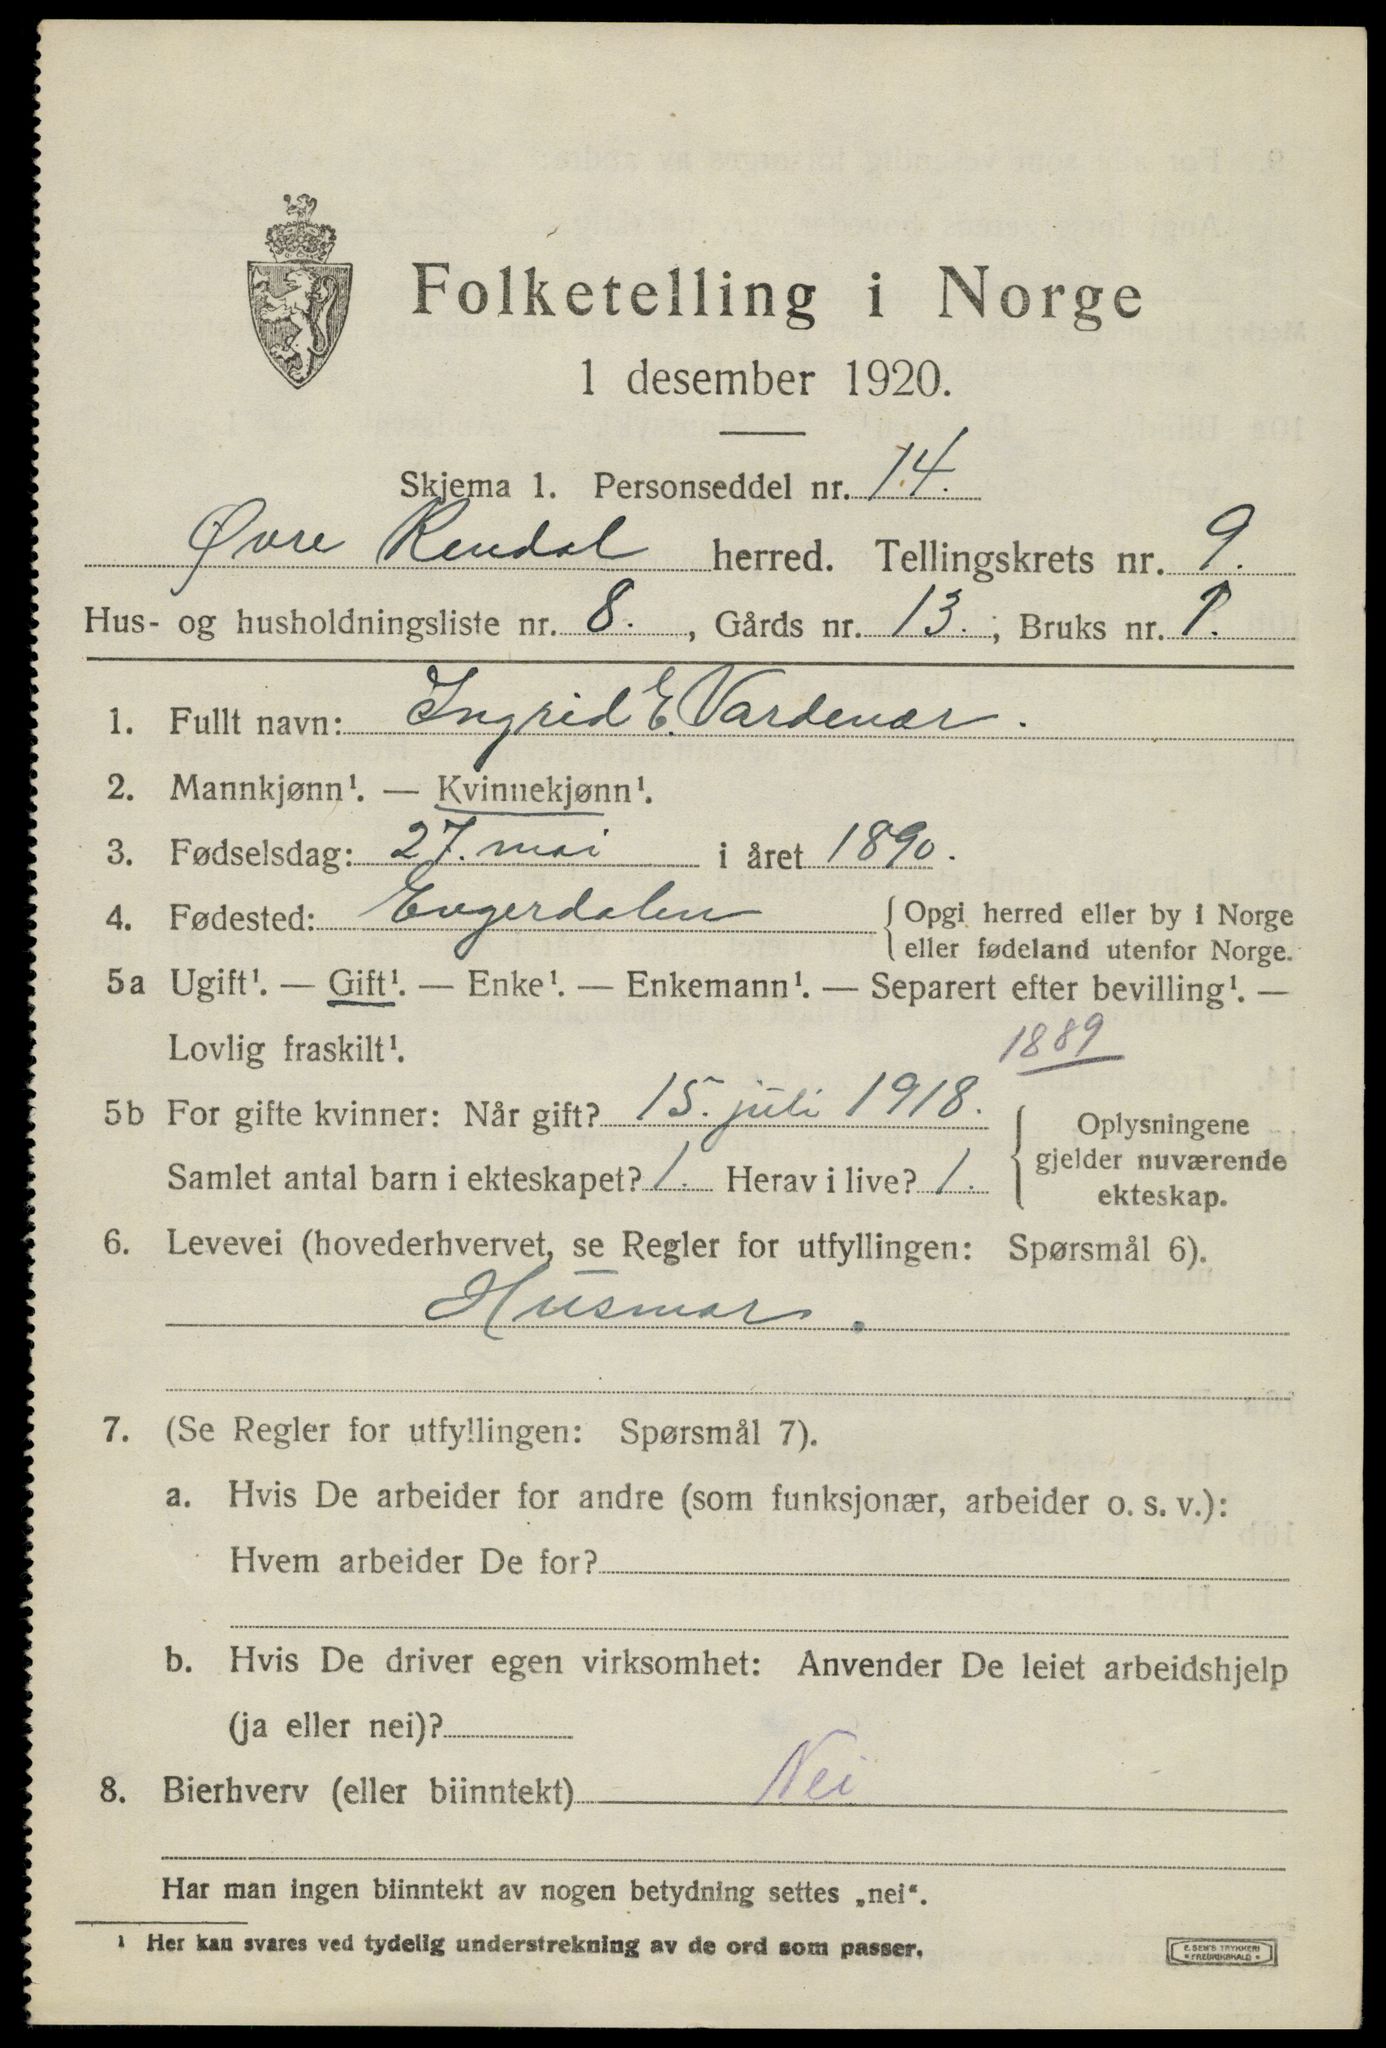 Folketelling i Norge
1 desember 1920.
Skjema 1. Personseddel nr. 14.
Øvre Rendal herred. Tellingskrets nr. 9.
Hus- og husholdningsliste nr. 8., Gårds nr. 13., Bruks nr. 1.
1. Fullt navn: Ingrid E. Vardenær.
2. Mannkjønn¹. — Kvinnekjønn¹.
3. Fødselsdag: 27. mai i året 1890.
4. Fødested: Engerdalen { Opgi herred eller by i Norge
eller fødeland utenfor Norge.
5a Ugift¹. — Gift¹. — Enke¹. — Enkemann¹. — Separert efter bevilling¹. —
Lovlig fraskilt¹. 1889
5b For gifte kvinner: Når gift? 15. juli 1918. { Oplysningene
gjelder nuværende
ekteskap.
Samlet antal barn i ekteskapet? 1. Herav i live? 1.
6. Levevei (hovederhvervet, se Regler for utfyllingen: Spørsmål 6).
Husmor.
7. (Se Regler for utfyllingen: Spørsmål 7).
a. Hvis De arbeider for andre (som funksjonær, arbeider o. s. v.):
Hvem arbeider De for?
b. Hvis De driver egen virksomhet: Anvender De leiet arbeidshjelp
(ja eller nei)?
8. Bierhverv (eller biinntekt) Nei
Har man ingen biinntekt av nogen betydning settes „nei“.
¹ Her kan svares ved tydelig understrekning av de ord som passer.
E. SEM'S TRYKKERI
FREDRIKSHALD